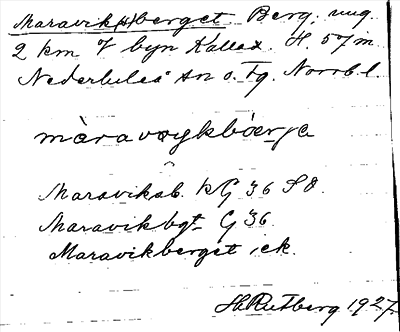 Maravik(s)berget Berg, ung.
2 km V byn Kallax. H. 57 m.
Nederluleå sn o. tg. Norrb. l.
màravᴐykbóærja
Maraviksb. kG 36 SO.
Maravikbgt G 36.
Maravikberget ek.
H. Rutberg 1927.